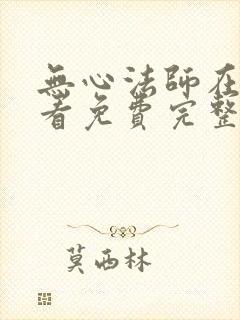 無心法師在
看免費完整
莫西林